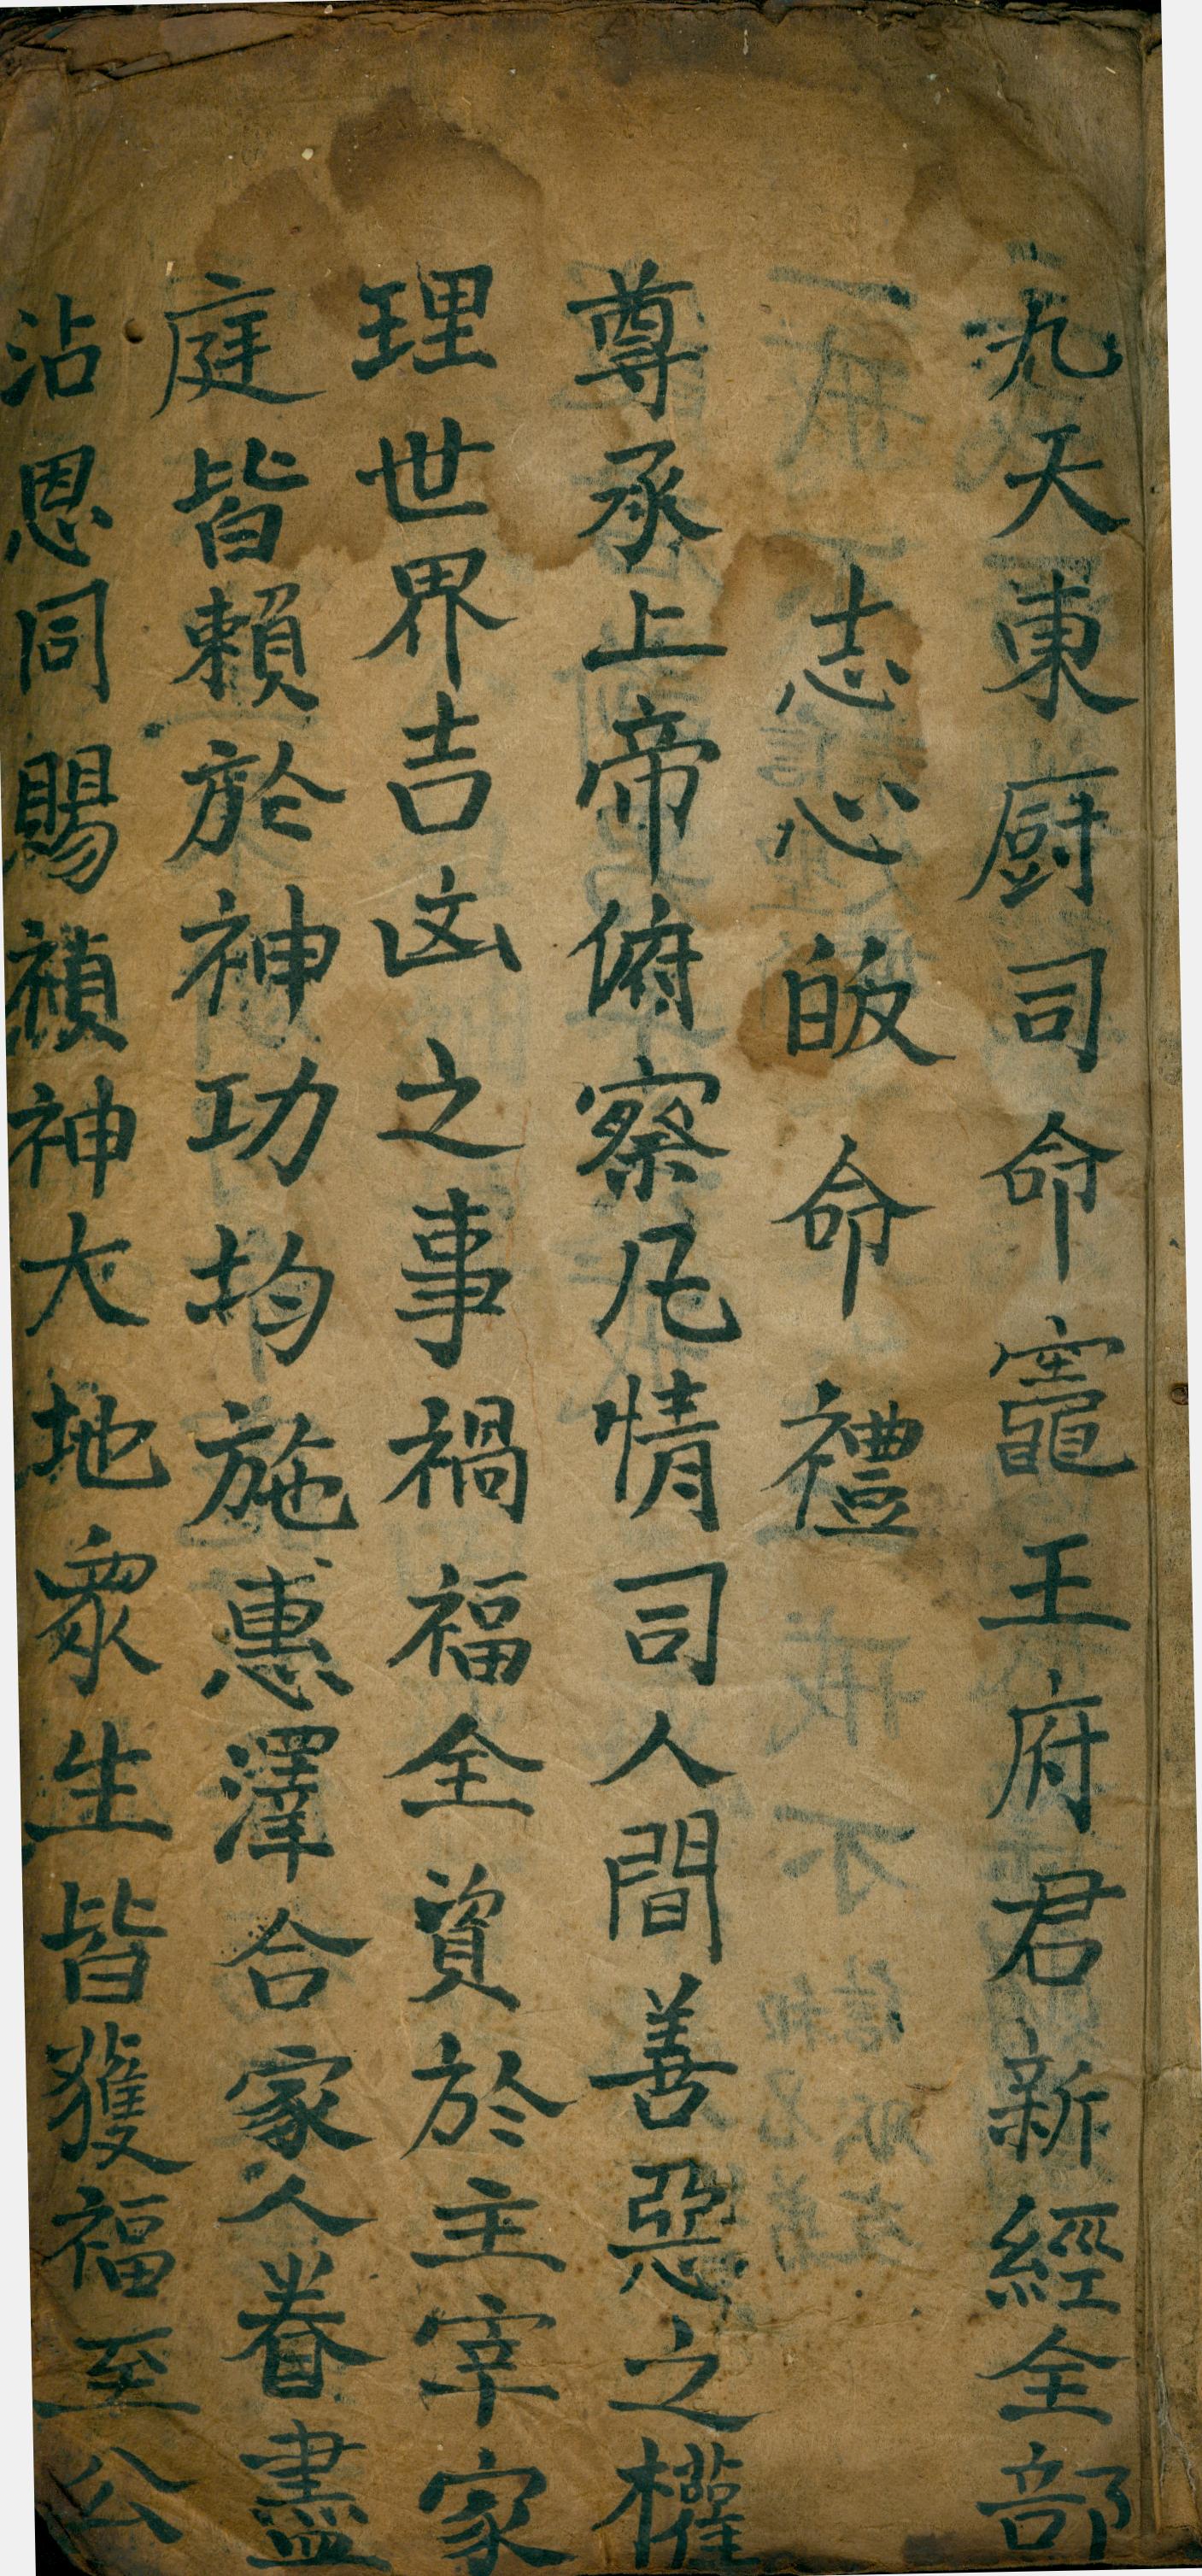 九天東厨司命竈王府君新經全部
志心皈命禮
尊承上帝俯察凡情司人間善惡之權
理世界吉凶之事禍福全資於主宰家
庭皆賴於神功均施惠澤合家人眷盡
沾恩同賜禎神大地衆生皆獲福至公